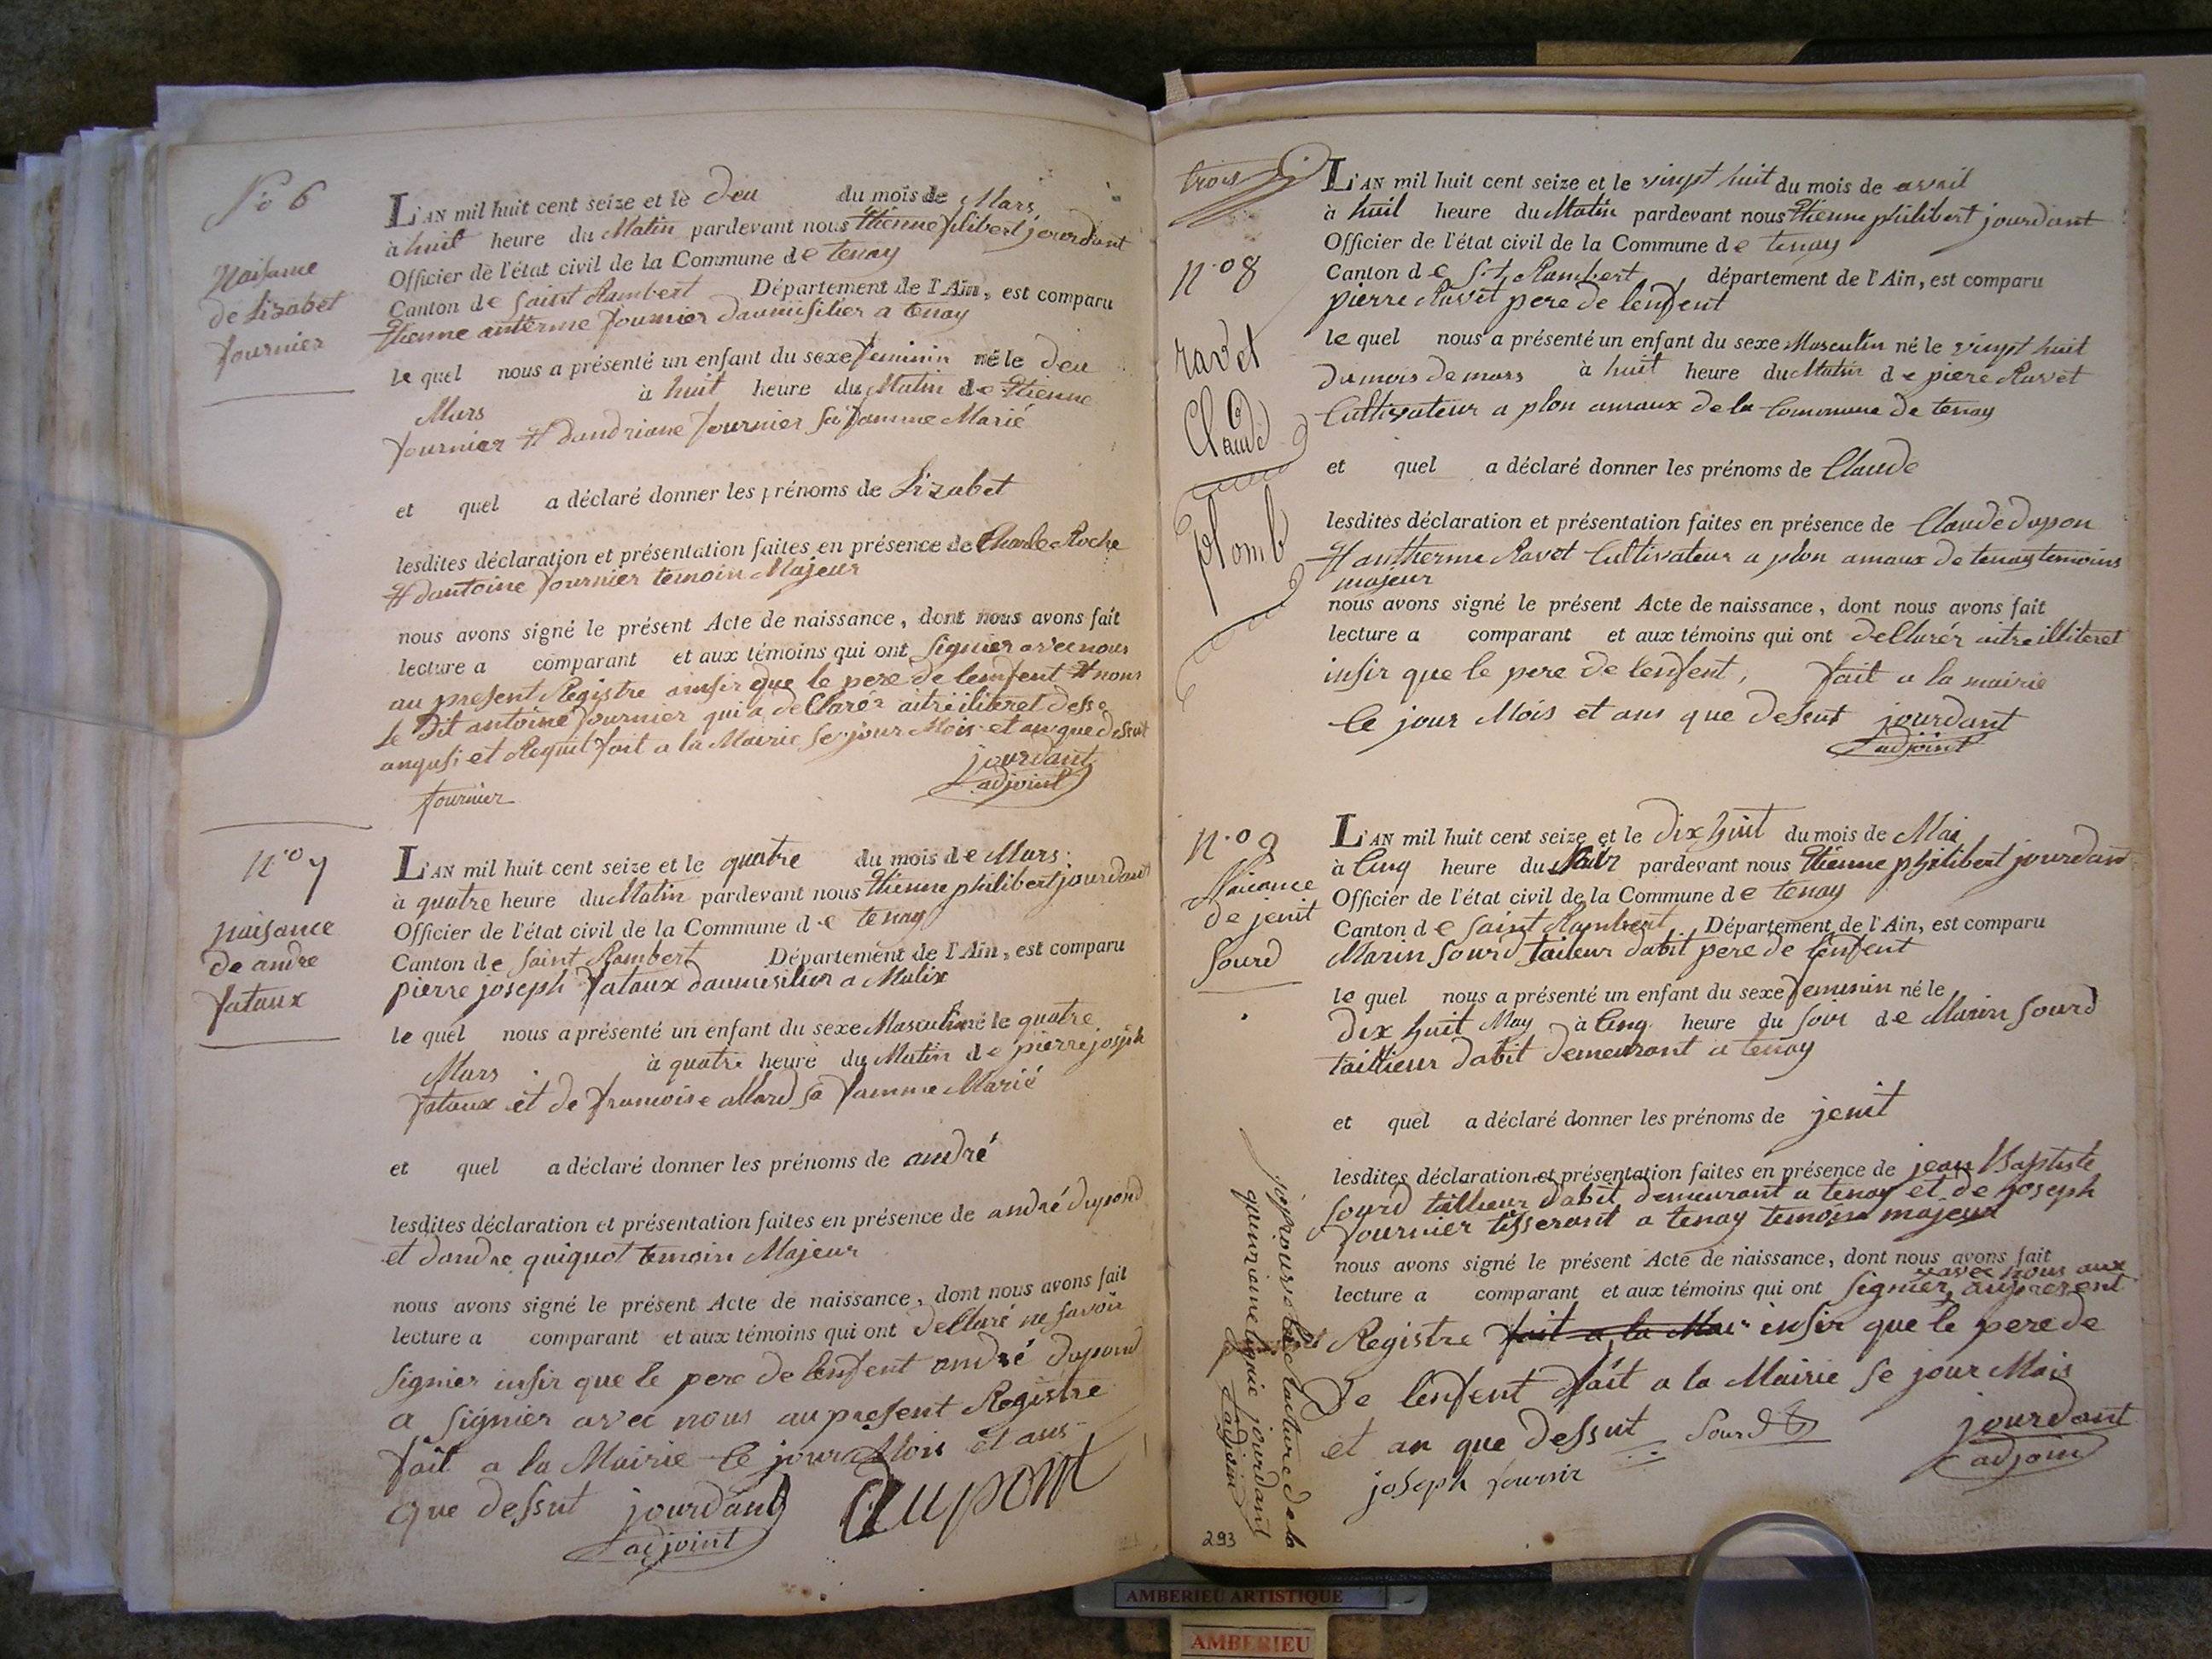 N° 6
Naisance
de Lizabet
fournier
L'AN mil huit cent seize et le deu du mois de Mars
à huit heure du Matin pardevant nous Etienne philibert jourdant
Officier de l'état civil de la Commune de tenay
Canton de Saint Rambert Département de l'Ain, est comparu
Etienne anterme fournier daumisilier a tenay
le quel nous a présenté un enfant du sexe feminin né le deu
Mars à huit heure du Matin de Etienne
fournier & dandriane fournier sa famme Marié
et quel a déclaré donner les prénoms de Lizabet
lesdites déclaration et présentation faites en présence de Charle Roche
& dantoine fournier temoin Majeur
nous avons signé le présent Acte de naissance, dont nous avons fait
lecture a comparant et aux témoins qui ont Signier avec nous
au present Registre ainsir que le pere de lenfent & nous
le dit antoine fournier qui a declarér aitre iliteret desse
anquis et Requit fait a la Mairie se jour Mois et an que dessut
jourdant
adjoint
fournier
n.° 7
naisance
de andre
fataux
L'AN mil huit cent seize et le quatre du mois de Mars
à quatre heure du Matin pardevant nous Etienne philibert jourdant
Officier de l'état civil de la Commune de tenay
Canton de Saint Rambert Département de l'Ain, est comparu
pierre joseph fataux daumisilier a Malix
le quel nous a présenté un enfant du sexe Masculin né le quatre
Mars à quatre heure du Matin de pierre joseph
fataux et de francoise allard sa famme Marié
et quel a déclaré donner les prénoms de andré
lesdites déclaration et présentation faites en présence de andré dupond
et dandre quiquot temoin Majeur
nous avons signé le présent Acte de naissance, dont nous avons fait
lecture a comparant et aux témoins qui ont declaré ne savoir
signier insir que le pere de lenfent andré dupond
a signier avec nous au present Registre
fait a la Mairie le jour Mois et ans
que dessut jourdant Dupont
adjoint
trois
n.° 8
ravet
Claude
plomb
L'AN mil huit cent seize et le vingt huit du mois de avril
à huit heure du Matin pardevant nous Etienne philibert jourdant
Officier de l'état civil de la Commune de tenay
Canton de St Rambert, département de l'Ain, est comparu
pierre Ravet pere de lenfent
le quel nous a présenté un enfant du sexe Masculin né le vingt huit
du mois de mars à huit heure du Matin de piere Ravet
Cultivateur a plon amaux de la Commune de tenay
et quel a déclaré donner les prénoms de Claude
lesdites déclaration et présentation faites en présence de Claude dupon
& antherme Ravet Cultivateur a plon amaux de tenay temoins
majeur
nous avons signé le présent Acte de naissance, dont nous avons fait
lecture a comparant et aux témoins qui ont declarér aitre illiteret
insir que le pere de lenfent, fait a la mairie
le jour Mois et ans que dessut jourdant
adjoint
n.° 9
Naicance
de jenit
Sourd
L'AN mil huit cent seize et le dix huit du mois de Mai
à Cinq heure du Soir pardevant nous Etienne philibert jourdant
Officier de l'état civil de la Commune de tenay
Canton de saint Rambert Département de l'Ain, est comparu
Marin Sourd taileur dabit pere de lenfent
le quel nous a présenté un enfant du sexe feminin né le
dix huit May à Cinq heure du soir de Marin Sourd
taillieur dabit demeurant a tenay
et quel a déclaré donner les prénoms de jenit
lesdites déclaration et présentation faites en présence de jean Baptiste
Sourd taillieur dabit demeurant a tenay et de joseph
fournier tisserant a tenay temoin majeur
nous avons signé le présent Acte de naissance, dont nous avons fait
lecture a comparant et aux témoins qui ont signier avec nous aux present
Registre fait a la Mai insir que le pere de
de lenfent fait a la Mairie se jour Mois
et an que dessut Sourd jourdant
adjoin
joseph fournir
japrouve la Racture de la
quinzieme ligne jourdant
adjoint
293
AMBERIEU ARTISTIQUE
AMBERIEU